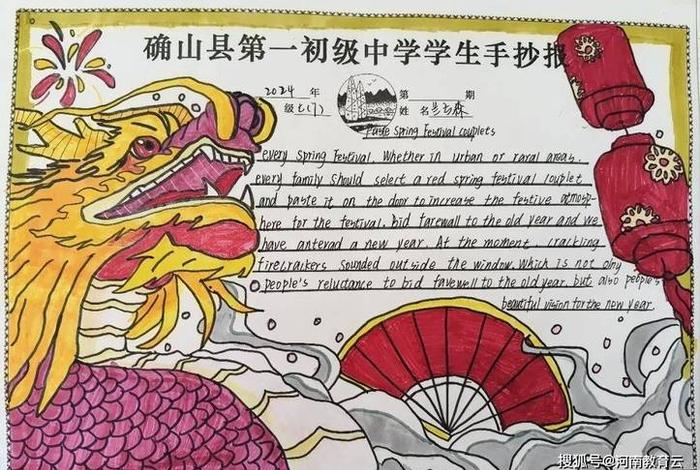 确山县第一初级中学学生手抄报
2024 年 第 期
级 七(7) 姓 名
Paste Spring Festival couplets
every Spring Festival. Whether in urban or raral areas.
every family should select a red spring festival couplet
and paste it on the door to increase the festive atmosp-
here for the festival. bid farewall to the old year and we
have anterad a new year. At the moment, crackling
firecraikers sounded outside the window. Which is not only
people's reluctance to bid favewell to the old year. but also people's
beautiful vision for the new year.
搜狐号@河南教育云